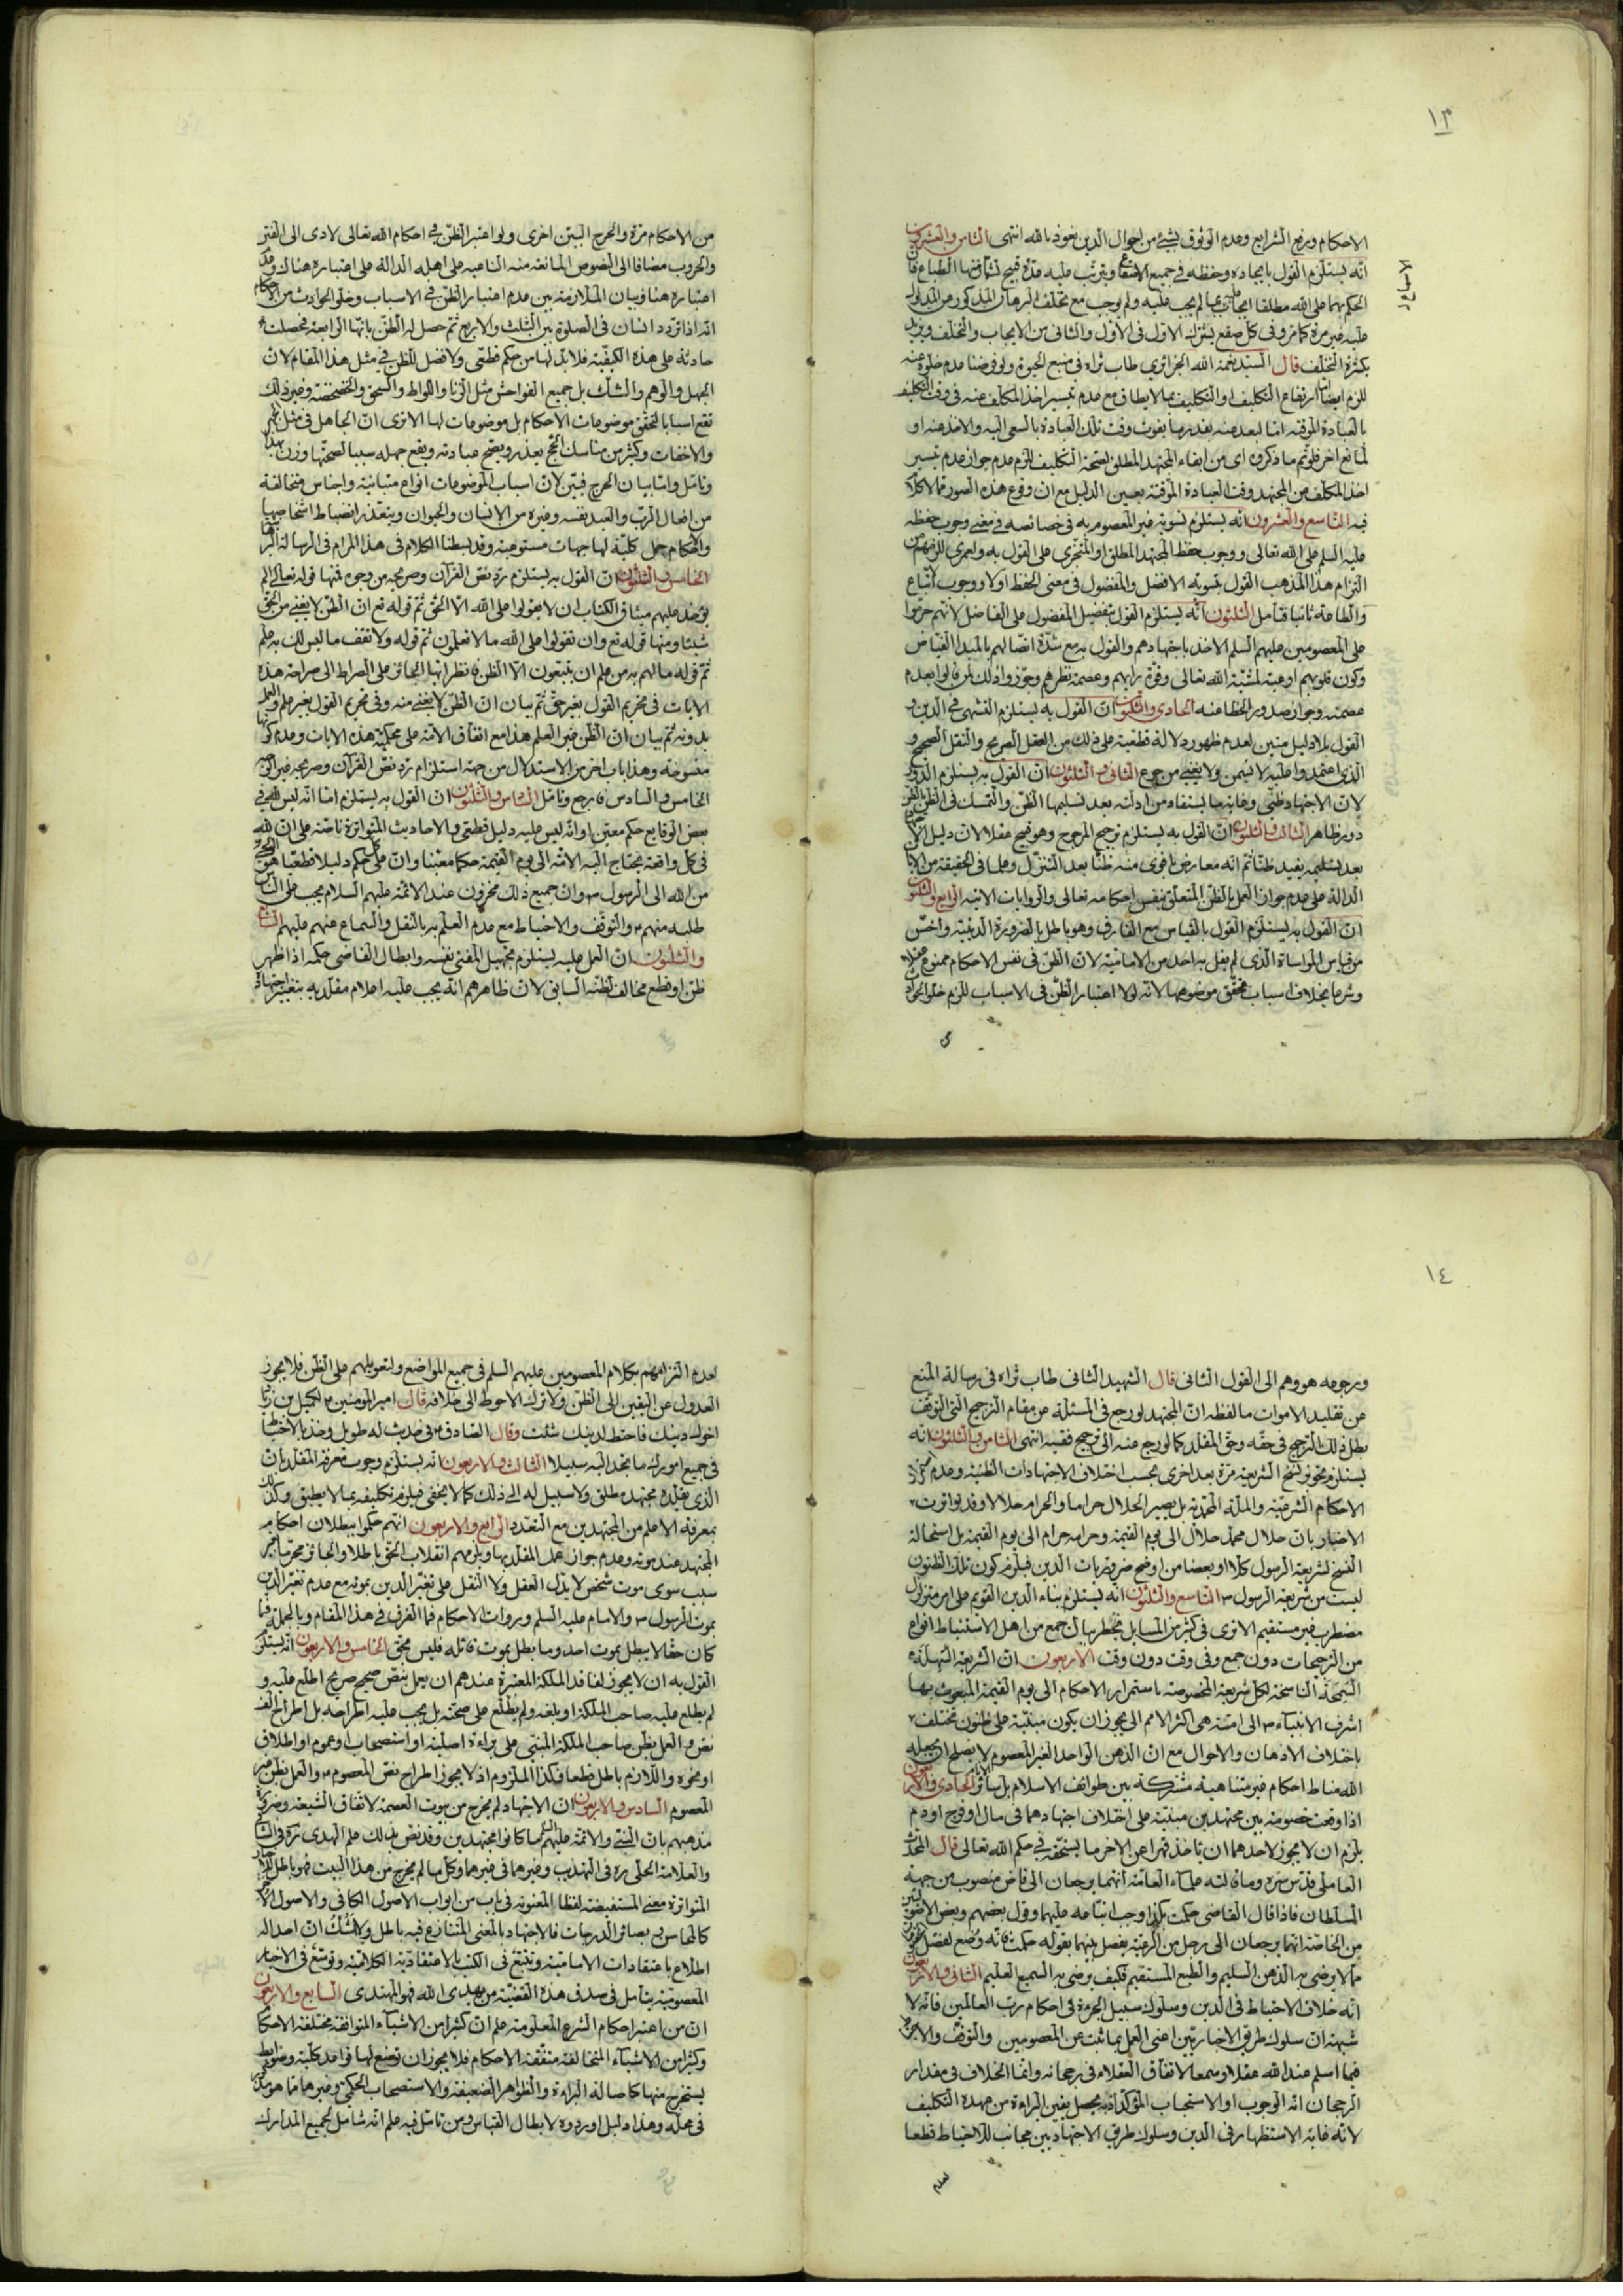 ١٣
الاحكام ورفع الشرايع وعدم الوثوق بشئ من احوال الدين نعوذ بالله انتهى الثامن والعشرون
انه يستلزم القول بايجاده وحفظه في جميع ويترتب عليه مدة قبيح الطباع فان
الحكم بهما على الله مطلقا ايجاب بما لم يجب عليه ولم يوجب مع تخلف البرهان المذكور عن المدلول
عليه غير مرة كما مر وفى كل صقع يشترك الاول فى الاول والثانى من الايجاب والتخلف ويزيد
بكثرة التخلف قال السيد نعمة الله الجزائري طاب ثراه في منبع الحيوة ولو فرضنا عدم خلوه عنه
للزم ايضا ارتفاع التكليف او التكليف بما لا يطاق مع عدم تيسير اخذ المكلف عنه فى وقت التكليف
بالعبادة الموقته اما لبعد عنه بقدر ما يفوت وقت تلك العبادة بالسعى اليه والاخذ عنه او
لمانع اخر فلو تم ما ذكروه اى من ابقاء المجتهد المطلق لصحة التكليف للزم عدم جواز عدم تيسير
اخذ المكلف من المجتهد وقت العبادة الموقتة بعين الدليل مع ان وقوع هذه الصور مما لا كلام
فيه التاسع والعشرون انه يستلزم تسوية غير المعصوم به في خصائصه في معنى وجوب حفظه
عليه السلم على الله تعالى ووجوب حفظ المجتهد المطلق او المتجزى على القول به ولعمرى للزمهم من
التزام هذا المذهب القول بتسوية الافضل والمفضول فى معنى الحفظ اولا ووجوب اتباع
والطاعة ثانيا فتأمل الثلثون انه يستلزم القول بتفضيل المفضول على الفاضل لانهم حرموا
على المعصومين عليهم السلم الاخذ باجتهادهم والقول به مع شدة اتصالهم بالمبدا الفياض
وكون قلوبهم اوعية لمشية الله تعالى وقوة رايهم وعصمة نظرهم وجوزوا ذلك لمن قالوا بعدم
عصمته وجواز صدور الخطا منه الحادى والثلثون ان القول به يستلزم التشهى في الدين و
القول بلا دليل متين لعدم ظهور دلالة قطعية على ذلك من العقل الصريح والنقل الصحيح و
الذى اعتمدوا عليه لا يسمن ولا يغنى من جوع الثانى والثلثون ان القول به يستلزم الدور
لان الاجتهاد ظنى وغاية ما يستفاد من ادلته بعد تسليمها الظن والتمسك فى الظن بالظن
دور ظاهر الثالث والثلثون ان القول به يستلزم ترجيح المرجوح وهو قبيح عقلا لان دليل
بعد تسليمه يفيد ظنا ثم انه معارض باقوى منه ظنا بعد التنزل وعلما فى الحقيقة من الايات
الدالة على عدم جواز العمل بالظن المتعلق بنفس احكامه تعالى والروايات الاتية الرابع والثلثون
ان القول به يستلزم القول بالقياس مع الفارق وهو باطل بالضرورة الدينية واخس
من قياس المواساة الذى لم يقل به احد من الامامية لان الظن فى نفس الاحكام ممنوع عقلا
وشرعا بخلاف اسباب تحقق موضوعها لانه لولا اعتبار الظن فى الاسباب للزم خلو الحوادث
من الاحكام مرة والحرج البين اخرى ولو اعتبر الظن في احكام الله تعالى لادى الى الفتن
والحروب مضافا الى النصوص المانعة منه الناعيه على اهله الدالة على اعتباره هناك وعدم
اعتباره هنا وبيان الملازمة بين عدم اعتبار الظن في الاسباب وخلو الحوادث من الاحكام
انه اذا تردد انسان فى الصلوة بين الثلث والاربع ثم حصل له الظن بانها الرابعة فحصلت
حادثة على هذه الكيفية فلا بد لها من حكم قطعى ولا فضل للظن في مثل هذا المقام لان
الجهل والوهم والشك بل جميع الفواحش مثل الزنا واللواط والسحق والخضخضة وغير ذلك
تقع اسبابا لتحقق موضوعات الاحكام بل موضوعات لها الا ترى ان الجاهل فى مثل الجهر
والاخفات وكثير من مناسك الحج يعذر ويصح عبادته ويقع جهله سببا لصحتها وزن بهذا
وتامل واما بيان الحرج فبين لان اسباب الموضوعات انواع متباينة واجناس متخالفة
من افعال الرب والعبد نفسه وغيره من الانسان والحيوان ويتعذر انضباط اشخاصها
والاحكام جمل كلية لها جهات مستوعبة وقد بسطنا الكلام فى هذا المرام فى الرسالة
الخامس والثلثون ان القول به يستلزم رد نص القرآن وصريحه من وجوه فمنها قوله تعالى الم
يؤخذ عليهم ميثاق الكتاب ان لا يقولوا على الله الا الحق ثم قوله تع ان الظن لا يغنى من الحق
شيئا ومنها قوله تع وان تقولوا على الله ما لا تعلمون ثم قوله ولا تقف ما ليس لك به علم
ثم قوله ما لهم به من علم ان يتبعون الا الظن فانظر ايها الجائز على الصراط الى صراحة هذه
الايات فى تحريم القول بغير حق ثم بيان ان الظن لا يغنى منه وفى تحريم القول بغير علم والعمل
بدونه ثم بيان ان الظن غير العلم هذا مع اتفاق الامة على محكمية هذه الايات وعدم كونها
منسوخة وهذا باب اخر من الاستدلال من جهة استلزام رد نص القرآن وصريحه غير الوجه
الخامس والسادس فارجع وتامل السادس والثلثون ان القول به يستلزم اما انه ليس لله في
بعض الوقايع حكم معين او انه ليس عليه دليل قطعى والاحاديث المتواترة ناصة على ان لله
فى كل واقعة يحتاج اليه الامة الى يوم القيمة حكما معينا وان على كل حكم دليلا قطعيا
من الله الى الرسول ص وان جميع ذلك مخزون عند الائمة عليهم السلام يجب على الناس
طلبه منهم ع والتوقف والاحتياط مع عدم العلم به بالنقل والسماع عنهم عليهم السابع
والثلثون ان العمل عليه يستلزم تجهيل المفتى نفسه وابطال القاضى حكمه اذا ظهر
ظن او قطع مخالف لظنه السابق لان ظاهرهم انه يجب عليه اعلام مقلديه بتغيير اجتهاده
١٤
ورجوعه هو وهم الى القول الثانى قال الشهيد الثانى طاب ثراه فى رسالة المنع
عن تقليد الاموات ما لفظه ان المجتهد لو رجع فى المسئلة عن مقام الترجيح التى التوقف
بطل ذلك الترجيح فى حقه وحق المقلد كما لو رجع منه الى ترجيح فقيه انتهى الثامن والثلثون انه
يستلزم تجويز نسخ الشريعة مرة بعد اخرى بحسب اختلاف الاجتهادات الظنية وعدم
الاحكام الشرعية والملة المحمدية بل يصير الحلال حراما والحرام حلالا وقد تواترت
الاخبار بان حلال محمد حلال الى يوم القيمة وحرامه حرام الى يوم القيمة بل استحالة
النسخ لشريعة الرسول كلا او بعضا من اوضح ضروريات الدين فيلزم كون تلك الظنون
ليست من شريعة الرسول ص التاسع والثلثون انه يستلزم بناء الدين القويم على امر متزلزل
مضطرب غير مستقيم الا ترى فى كثير من المسايل يخطر ببال جمع من اهل الاستنباط انواع
من الترجيحات دون جمع وفى وقت دون وقت الاربعون ان الشريعة السهلة
السمحة الناسخة لكل شريعة المخصوصة باستمرار الاحكام الى يوم القيمة المبعوث بها
اشرف الانبياء ص الى امته هى اكثر الامم الى يجوز ان يكون مبتنية على ظنون تختلف
باختلاف الاذهان والاحوال مع ان الذهن الواحد الغير المعصوم لا يصلح ان يجعله
الله مناط احكام غير متناهية مشتركة بين طوائف الاسلام الحادى والاربعون
اذا وقعت خصومة بين مجتهدين مبتنية على اختلاف اجتهادهما فى مال او فرج او دم
يلزم ان لا يجوز لاحدهما ان ياخذ قهرا عن الاخر ما يستحقه في حكم الله تعالى قال المحدث
العاملى قدس سره وما قالته علماء العامة انهما يرجعان الى قاض منصوب من جهة
السلطان فاذا قال القاضى حكمت بكذا وجب اتباعه عليهما وقول بعضهم وبعض
من الخاصة انهما يرجعان الى رجل من الرعية يفصل بينهما بقوله حكمت فانه وضع لفصل
مما لا يرضى به الذهن السليم والطبع المستقيم فكيف يرضى به السميع العليم الثانى والاربعون
انه خلاف الاحتياط فى الدين وسلوك سبيل الجرءة فى احكام رب العالمين فانه لا
شبهة ان سلوك طريق الاخباريين اعنى العمل بما ثبت عن المعصومين والتوقف والاحتياط
فيما اسلم عند الله عقلا وسمعا لاتفاق العقلاء فى رجحانه وانما الخلاف فى مقدار
الرجحان انه الوجوب او الاستحباب المؤكد اذ به يحصل يقين البراءة من عهدة التكليف
لانه غاية الاستظهار فى الدين وسلوك طريق الاجتهاديين مجانب للاحتياط قطعا
لعدم
لعدم التزامهم بكلام المعصومين عليهم السلم فى جميع المواضع ولتعويلهم على الظن فلا يجوز
العدول عن اليقين الى الظن ولا ترك الاحوط الى خلافه قال امير المؤمنين ع لكميل بن زياد
اخوك دينك فاحتط لدينك بما شئت وقال الصادق ع فى حديث له طويل وخذ بالاحتياط
فى جميع امورك ما تجد اليه سبيلا الثالث والاربعون انه يستلزم وجوب معرفة المقلد بان
الذى يقلده مجتهد مطلق ولا سبيل له الى ذلك كما لا يخفى فيلزم تكليفه بما لا يطيق وكذلك
بمعرفة الاعلم من المجتهدين مع التعدد الرابع والاربعون انهم حكموا ببطلان احكام
المجتهد عند موته وعدم جواز عمل المقلد بها ويلزمهم انقلاب الحق باطلا والجائز محرما بغير
سبب سوى موت شخص لا يدل العقل ولا النقل على تغير الدين بموته مع عدم تغير الدين
بموت الرسول ص والامام عليه السلم وروات الاحكام فما الفرق في هذا المقام وبالجملة فما
كان حقا لا يبطل بموت احد وما بطل بموت قائله فليس بحق الخامس والاربعون انه يستلزم
القول به ان لا يجوز لفاقد الملكة المعتبرة عندهم ان يعمل بنص صحيح صريح اطلع عليه و
لم يطلع عليه صاحب الملكة او بلغه ولم يطلع على صحته بل يجب عليه اطراحه بل اطراح الف
نص والعمل بظن صاحب الملكة المبنى على براءة اصلية او استصحاب او عموم او اطلاق
او نحوه واللازم باطل قطعا فكذا الملزوم اذ لا يجوز اطراح نص المعصوم ع والعمل بظن غير
المعصوم السادس والاربعون ان الاجتهاد لم يخرج من بيوت العصمة لاتفاق الشيعة وضرورة
مذهبهم بان النبى والائمة عليهم السلم ما كانوا مجتهدين وقد نص بذلك علم الهدى ره فى الشافى
والعلامة الحلى ره فى التهذيب وغيرهما فى غيرهما وكل ما لم يخرج من هذا البيت فهو باطل
المتواترة معنى المستفيضة لفظا المعنونة في باب من ابواب الاصول الكافى والاصول
كالمحاسن وبصائر الدرجات فالاجتهاد بالمعنى المتنازع فيه باطل ولا اشك ان احدا له
اطلاع باعتقادات الامامية وتتبع فى الكتب بالاعتقادية الكلامية وتوسع فى الاخبار
المعصومية يتأمل فى صدق هذه القضية من يهدى الله فهو المهتدى السابع والاربعون
ان من اعتبر احكام الشرع المعلومة علم ان كثيرا من الاشياء المتوافقة مختلفة الاحكام
وكثيرا من الاشياء المتخالفة متفقة الاحكام فلا يجوز ان توضع لها قواعد كلية وضوابط
يستخرج منها كاصالة البراءة والظواهر الضعيفة والاستصحاب الحكمى وغيرها مما هو مذكور
فى محله وهذا دليل اوردوه لابطال القياس ومن تامل فيه علم انه شامل لجميع المدارك